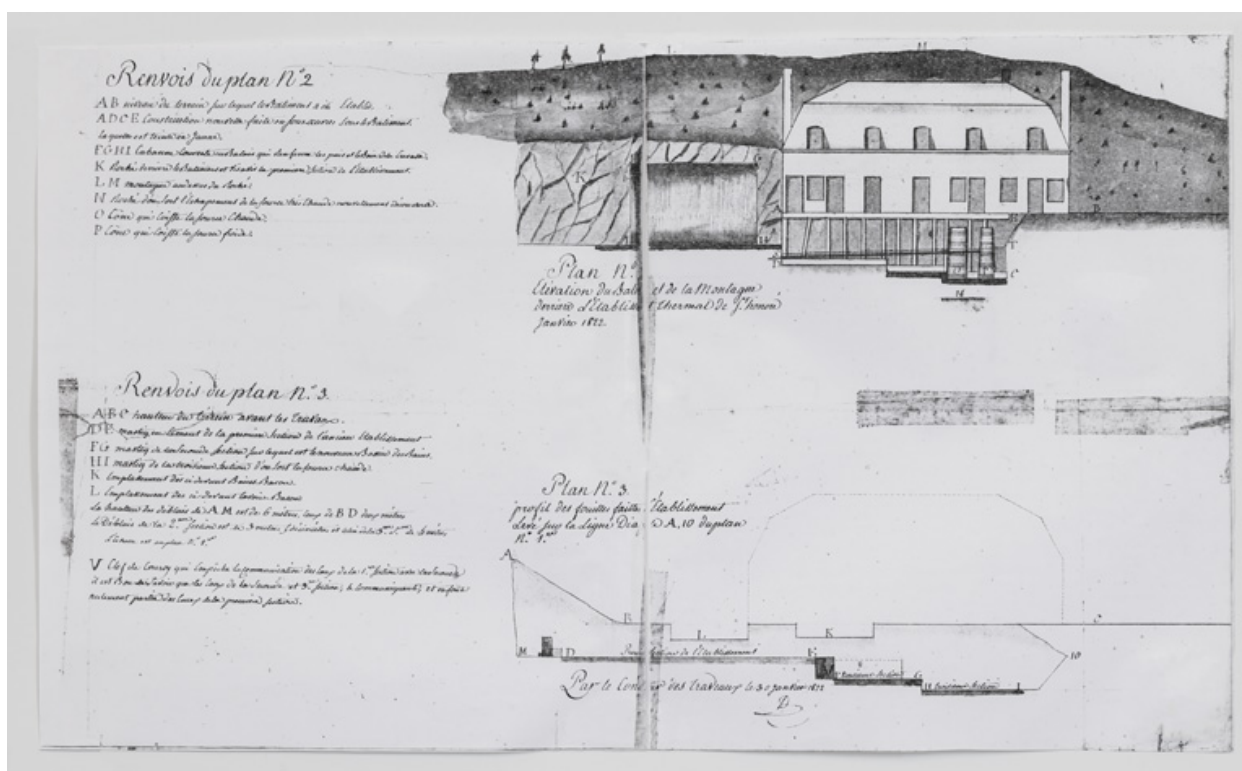 Renvois du plan N.º 2
A B niveau du terrain sur lequel le Batiment a été Etabli.
A D C E Construction nouvelle faite en sous œuvre sous le Batiment
laquelle est teinte en jaune.
F G H I Cabanne couverte en Balais qui renferme les puis et le Bain des
K Rocher derriere le Batiment et vis-à-vis la premiere section de l'établissement.
L M montagne au dessus du Rocher.
N Rocher d'où sort l'échapement de la source très chaude nouvellement découverte.
O Cone qui coiffe la source chaude.
P Cone qui coiffe la source froide.
L
M
K
G
H
B
E
T
C
N
Plan N.º
Elévation du Bat et de la Montagne
derriere L'Etablis t thermal de S.t honoré
Janvier 1822.
Renvois du plan N.º 3.
A B C hauteur du terrain avant les travaux.
D E mastiq en ciment de la premiere section de l'ancien Etablissement
F G mastiq de la seconde section sur lequel est le nouveau Bassin des Bains.
H I mastiq de la troisieme section d'où sort la source chaude.
K Emplacement des ci devant Bains Bassin.
L Emplacement des ci devant Bassin
La hauteur des déblais de A M est de 6 metres, ceux de B D deux metres
le Déblais de la 2.me section est de 3 metres et celui de la 3.me de metres
V Clef de Conroy qui empêche la communication des eaux de la 1.re section avec la seconde
il est Bon de savoir que les eaux de la seconde et 3.me section, se communiquent, et ne font
nulement partie des eaux de la premiere section.
Plan N.º 3.
profil des fouilles faites Etablissement
Levé sur la Ligne Diag A, 10 du plan
N.º 1.er
A
B
C
L
K
M
D
E
G
I
10
section de l'Etablissement
Par le Conduc des travaux le 30 janvier 1822